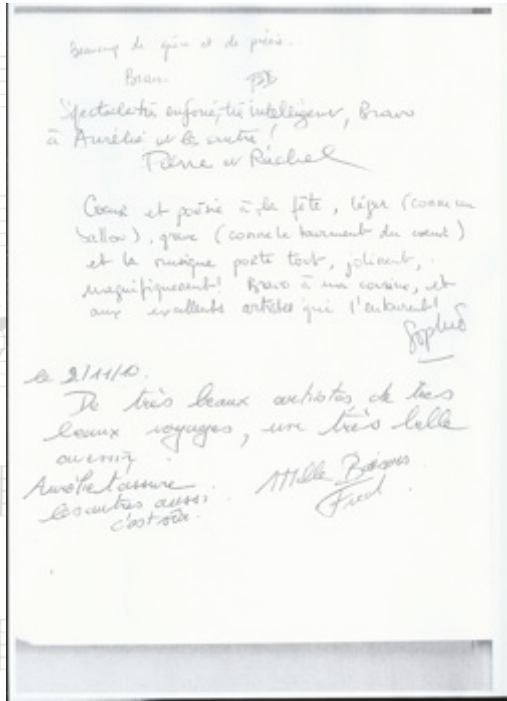 Beaucoup de grâce et de précis...
Bravo.
Spectacle très enjoué, très intelligent, Bravo
à Aurélie et les autres!
Pierre et Rachel
Coeur et poésie à la fête, léger (comme un
ballon), grave (comme le tourment du coeur)
et la musique porte tout, joliment,
magnifiquement! Bravo à ma cousine, et
aux excellents artistes qui l'entourent!
Sophie
le 2/11/10.
De très beaux artistes de très
beaux voyages, une très belle
Aurélie t'assure
les autres aussi
c'est sûr.
Mille Baisers
Fred